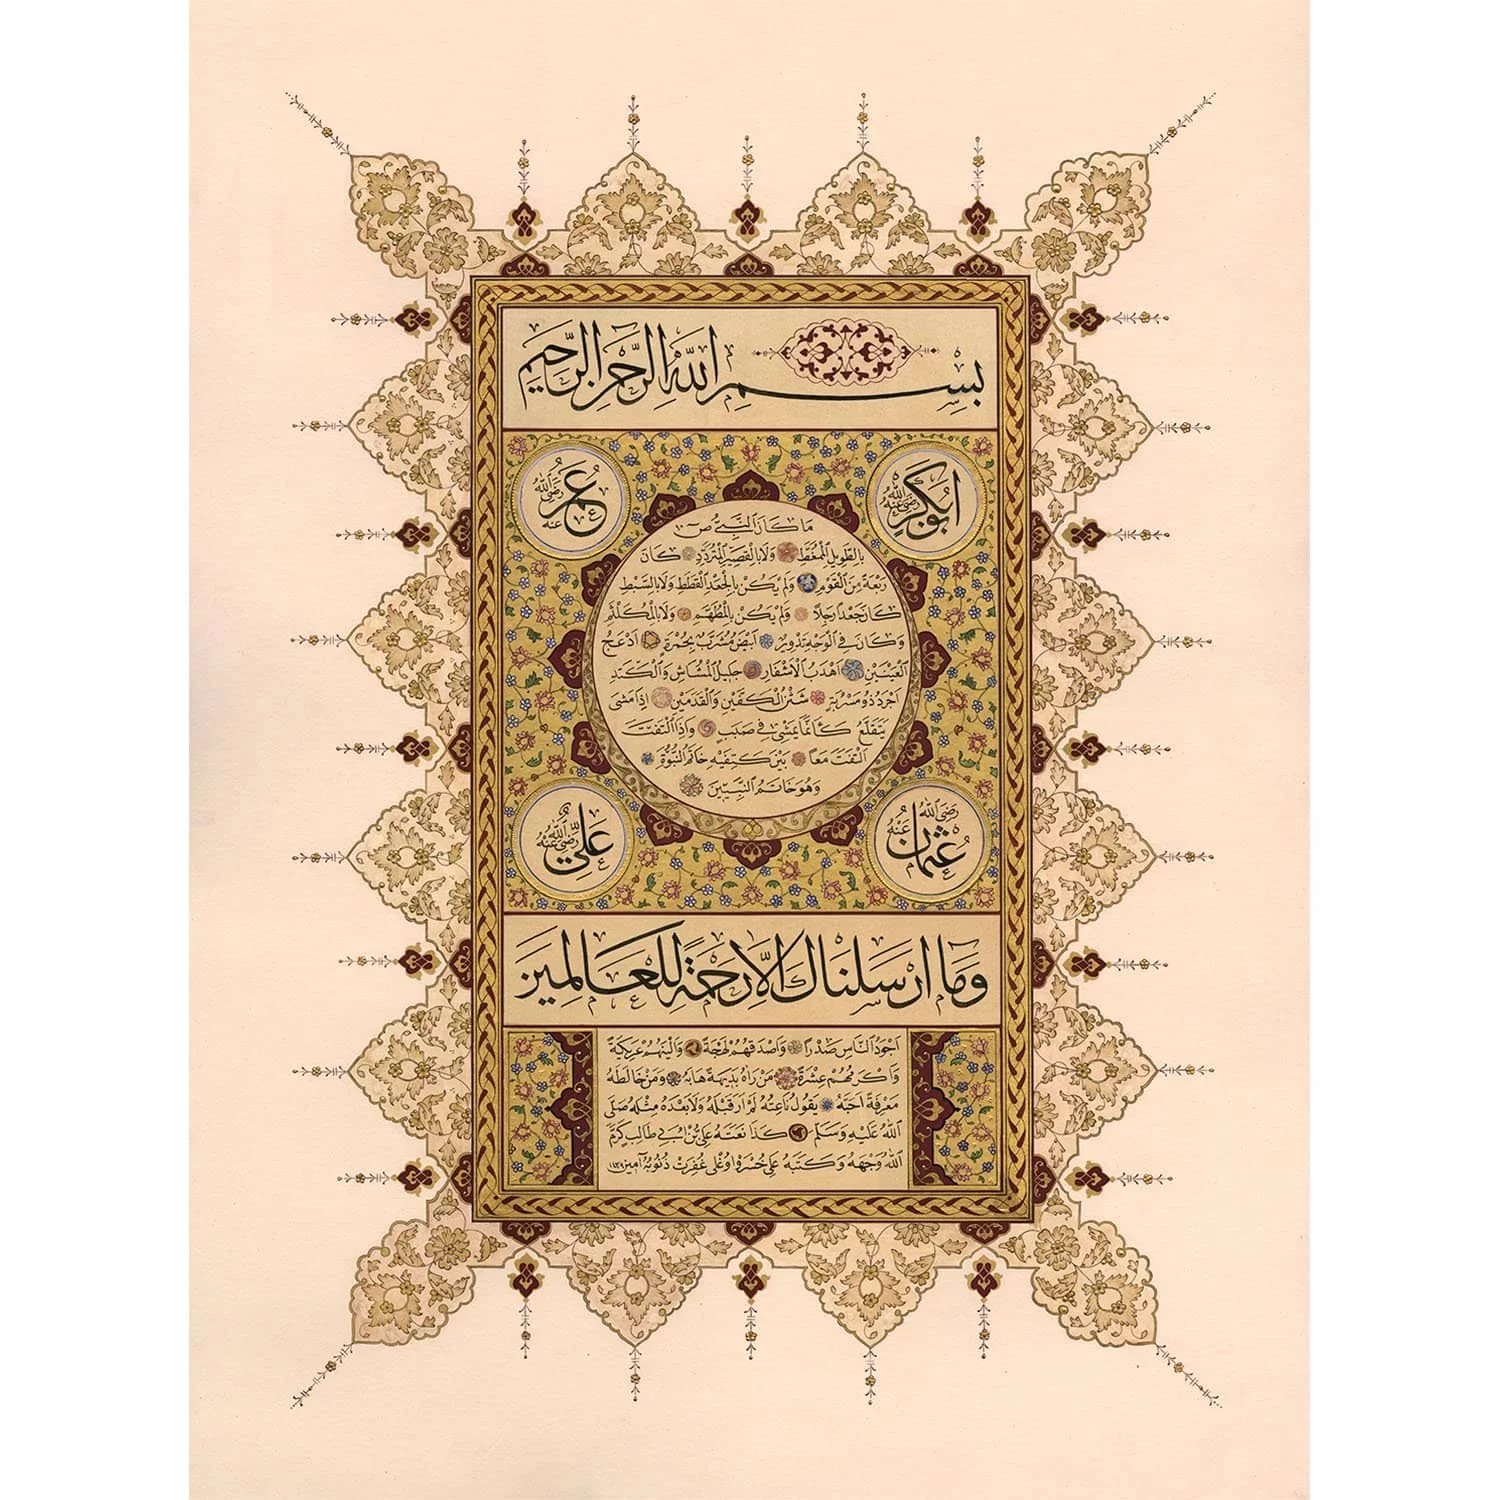 بِسْمِ اللّٰهِ الرَّحْمٰنِ الرَّحِيمِ
ابُو بَكَرْ رَضِىَ اللّٰه عَنْهُ
عُمَرْ رَضِىَ اللّٰه عَنْه
مَا كَانَ النَّبِىُّ ص
بِالطَّوِيلِ الْمُمَّغَطِ وَلَا بِالْقَصِيرِ الْمُتَرَدِّدِ كَانَ
رَبْعَةً مِنَ الْقَوْمِ وَلَمْ يَكُنْ بِالْجَعْدِ الْقَطَطِ وَلَا بِالسَّبْطِ
كَانَ جَعْدًا رَجِلًا وَلَمْ يَكُنْ بِالْمُطَهَّمِ وَلَا بِالْمُكَلْثَمِ
وَكَانَ فِى الْوَجْهِ تَدْوِيرٌ اَبْيَضُ مُشْرَبٌ بِحُمْرَةٍ اَدْعَجُ
الْعَيْنَيْنِ اَهْدَبُ الْاَشْفَارِ جَلِيلُ الْمُشَاشِ وَالْكَتَدِ
اَجْرَدُ ذُو مَسْرُبَةٍ شَثْنُ الْكَفَّيْنِ وَالْقَدَمَيْنِ اِذَا مَشَى
يَتَقَلَّعُ كَاَنَّمَا يَمْشِى فِى صَبَبٍ وَاِذَا الْتَفَتَ
الْتَفَتَ مَعًا بَيْنَ كَتِفَيْهِ خَاتَمُ النُّبُوَّةِ
وَهُوَ خَاتَمُ النَّبِيّينَ
عُثْمَانْ رَضِىَ اللّٰه عَنْهُ
عَلِىّ رَضِىَ اللّٰه عَنْهُ
وَمَا اَرْسَلْنَاكَ اِلَّا رَحْمَةً لِلْعَالَمِينَ
اَجْوَدُ النَّاسِ صَدْرًا وَاَصْدَقُهُمْ لَهْجَةً وَاَلْيَنُهُمْ عَرِيكَةً
وَاَكْرَمُهُمْ عِشْرَةً مَنْ رَاٰهُ بَدِيهَةً هَابَهُ وَمَنْ خَالَطَهُ
مَعْرِفَةً اَحَبَّهُ يَقُولُ نَاعِتُهُ لَمْ اَرَ قَبْلَهُ وَلَا بَعْدَهُ مِثْلَهُ صَلَّى
اللّٰهُ عَلَيْهِ وَسَلَّمَ كَذَا نَعَتَهُ عَلِىُّ بْنُ اَبِى طَالِبٍ كَرَّمَ
اللّٰهُ وَجْهَهُ وَكَتَبَهُ عَلِى خُسْرَوْ اُوغْلِى غُفِرَتْ ذُنُوبُهُ اٰمِين